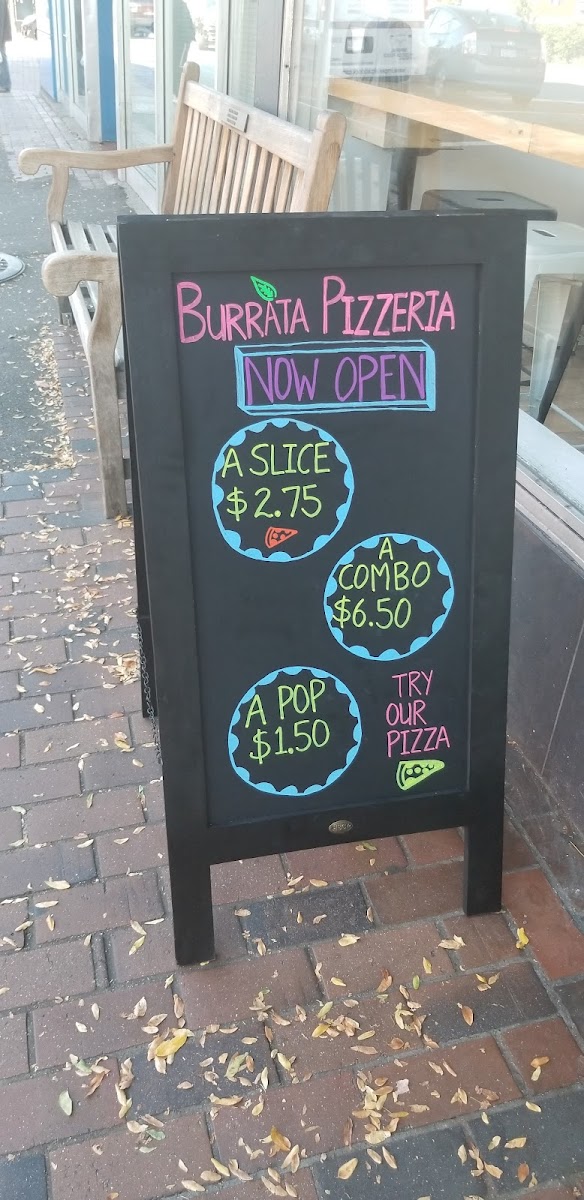 BURRATA PIZZERIA
NOW OPEN
A SLICE
$2.75
A
COMBO
$6.50
A POP
$1.50
TRY
OUR
PIZZA